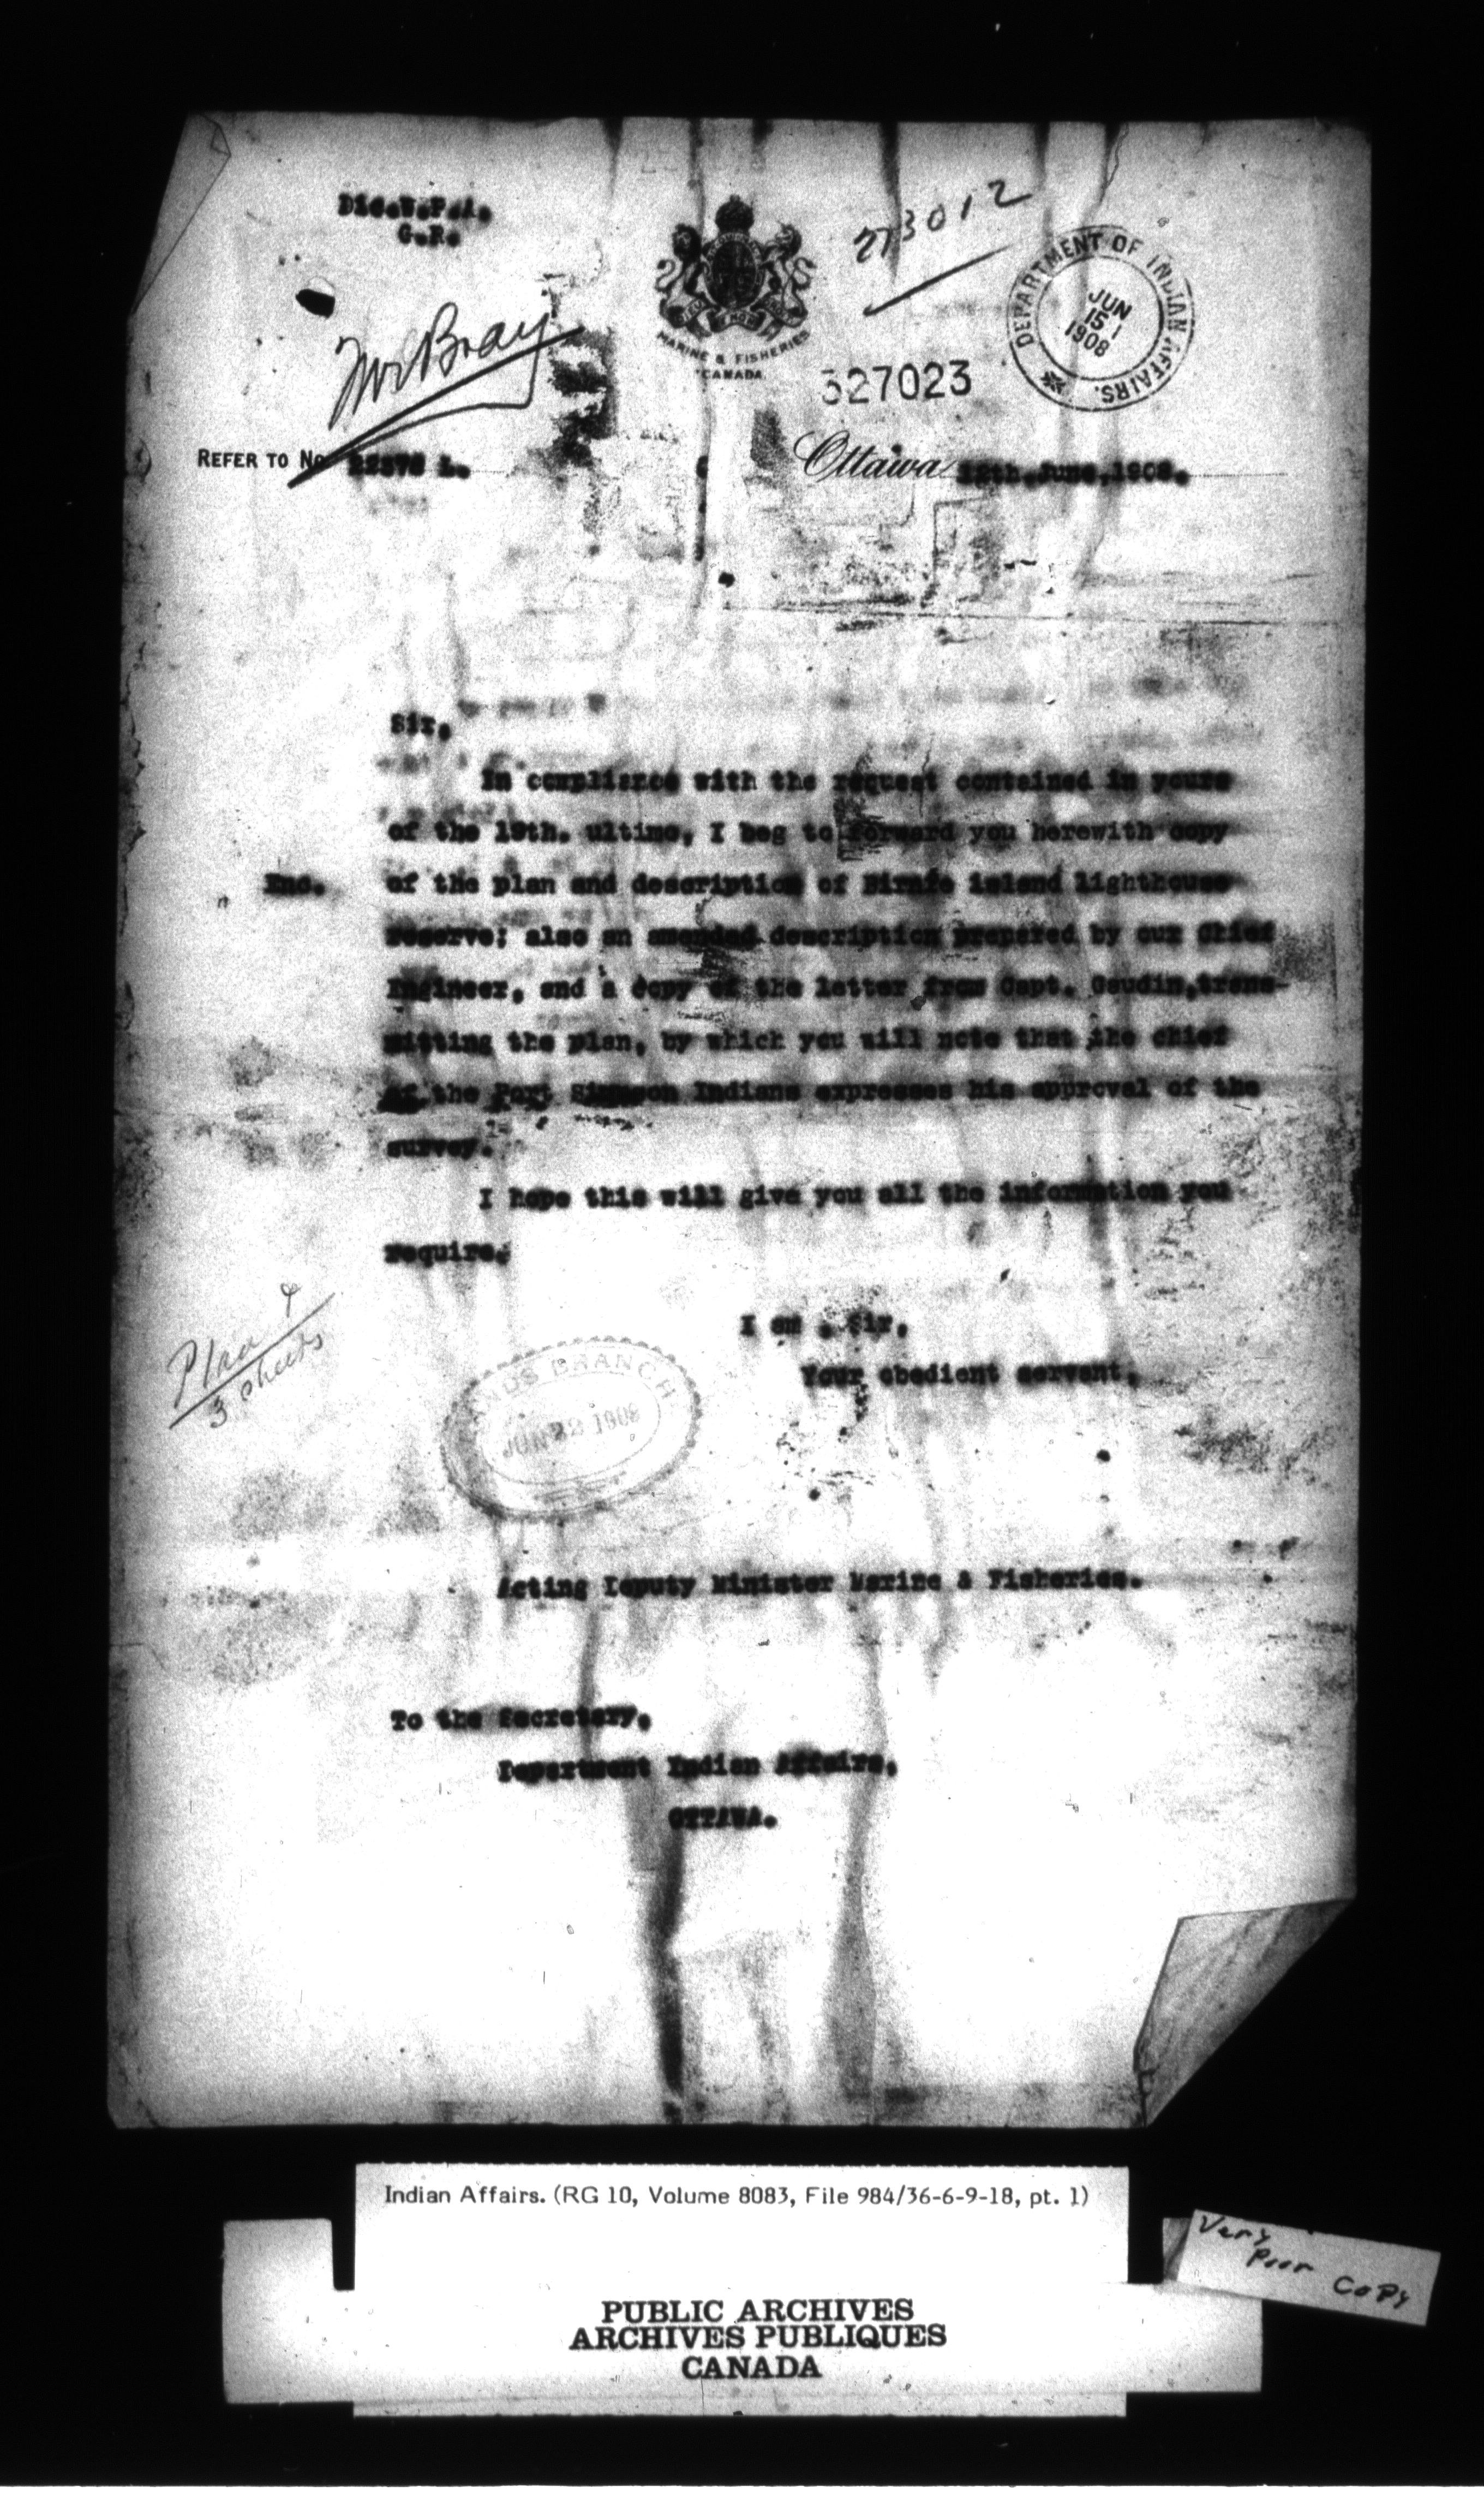 Dic.W.P.A.
G.R.
273012
MARINE & FISHERIES
CANADA
DEPARTMENT OF INDIAN AFFAIRS.
JUN
15
1908
Mr Bray
327023
REFER TO No. L.
Ottawa 12th. June, 1908.
Sir,
In compliance with the request contained in yours
of the 19th. ultimo, I beg to forward you herewith copy
Enc. of the plan and description of Birnie island lighthouse
reserve; also an amended description prepared by our Chief
Engineer, and a copy of the letter from Capt. Gaudin, trans-
mitting the plan, by which you will note that the chief
of the Port Simpson Indians expresses his approval of the
survey.
I hope this will give you all the information you
require.
Plan &
3 sheets
I am , Sir,
Your obedient servant,
LANDS BRANCH
JUN 22 1908
Acting Deputy Minister Marine & Fisheries.
To the Secretary,
Department Indian Affairs,
OTTAWA.
Indian Affairs. (RG 10, Volume 8083, File 984/36-6-9-18, pt. 1)
Very
Poor COPY
PUBLIC ARCHIVES
ARCHIVES PUBLIQUES
CANADA